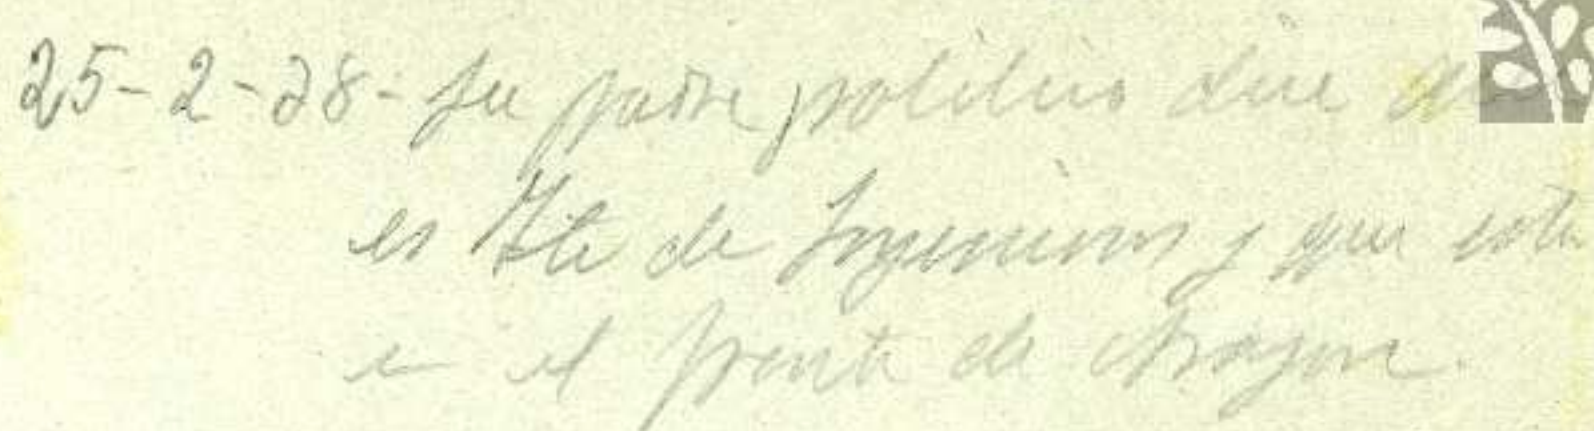 25-2-38- Su padre politico dice
es Tte de Ingenieros y que esta
en el frente de Aragon.